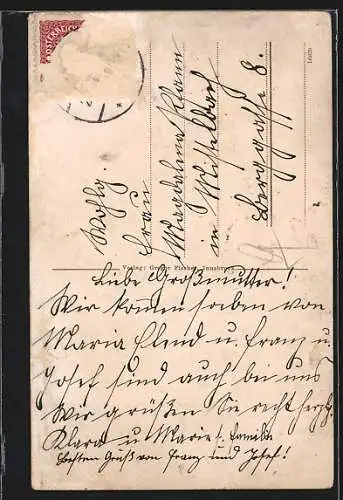 ÖSTERREICH
Wohlg.
Frau
Magdalena Klann
in
Mistelbach
Berggasse 8.
Verlag: Fischer, Innsbruck
Liebe Großmutter!
Wir kommen soeben von
Maria Elend u. Franz u.
Josef sind auch bei uns
Wir grüßen Sie recht herzlich
Klara u Marie s. Familie
Besten Gruß von Franz und Josef!